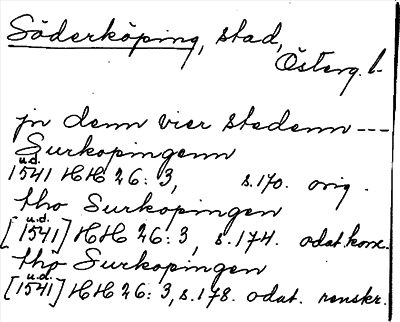 Söderköping, stad,
Österg. l.
jn denn vier stedenn ---
Surkopingenn
u.d.
1541 HH 26: 3, s.170. orig.
tho Surkopingen
u.d.
[1541] HH 26: 3, s.174. odat. konc.
tho Surkopingen
u.d.
[1541] HH 26: 3, s.178. odat. renskr.